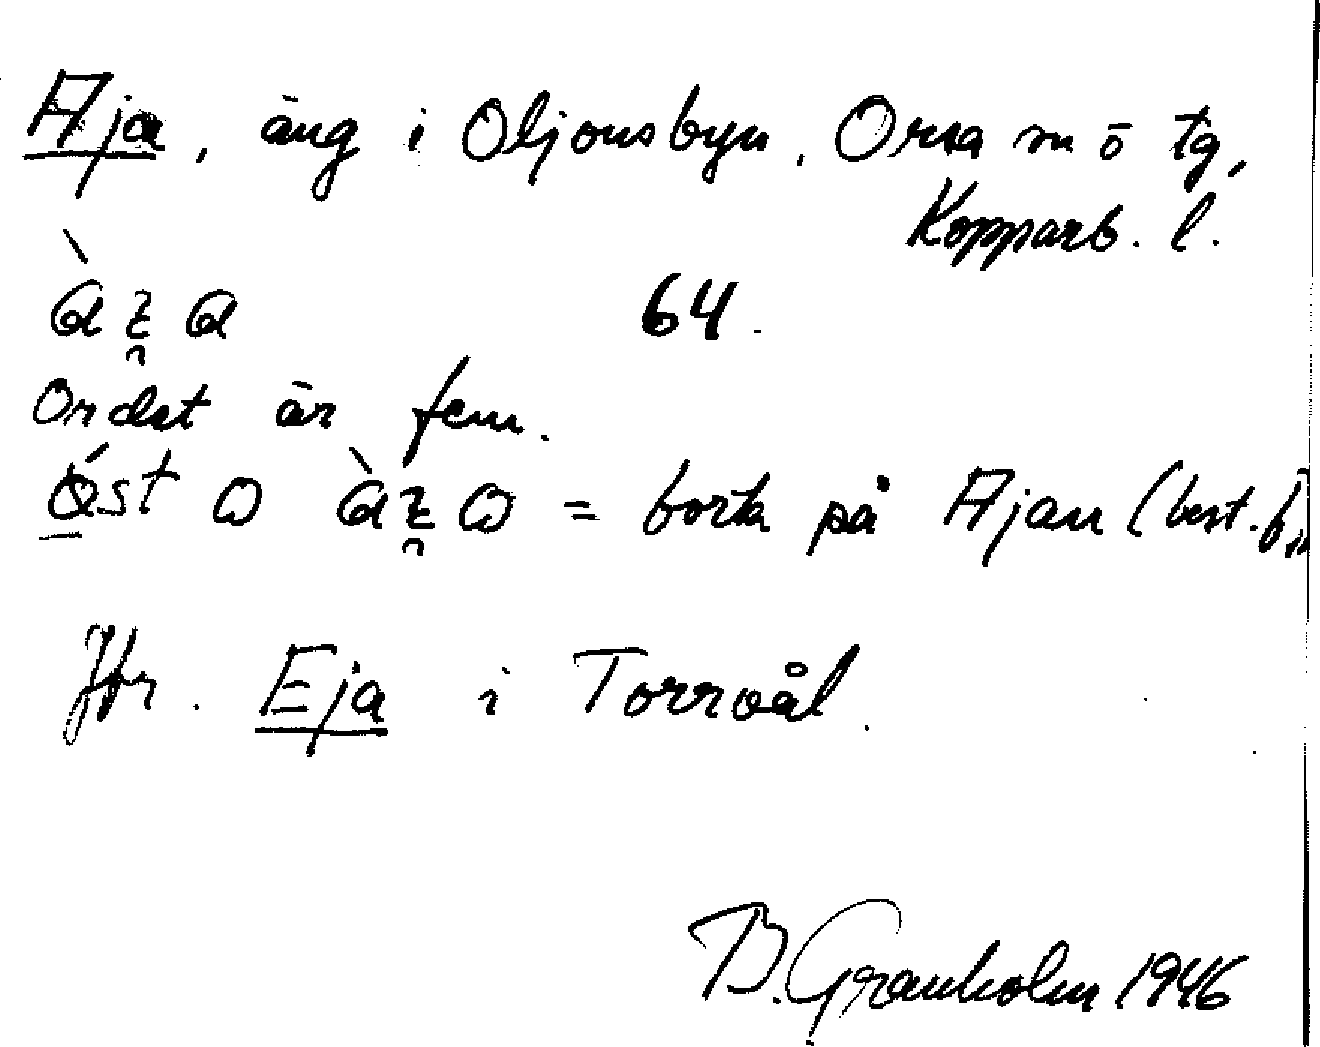 Aja, äng i Oljonsbyn, Orsa sn o tg,
Kopparb. l.
64.
Ordet är fem.
= borta på Ajan (best. f.)
Jfr. Eja i Torrvål.
B. Granholm 1946